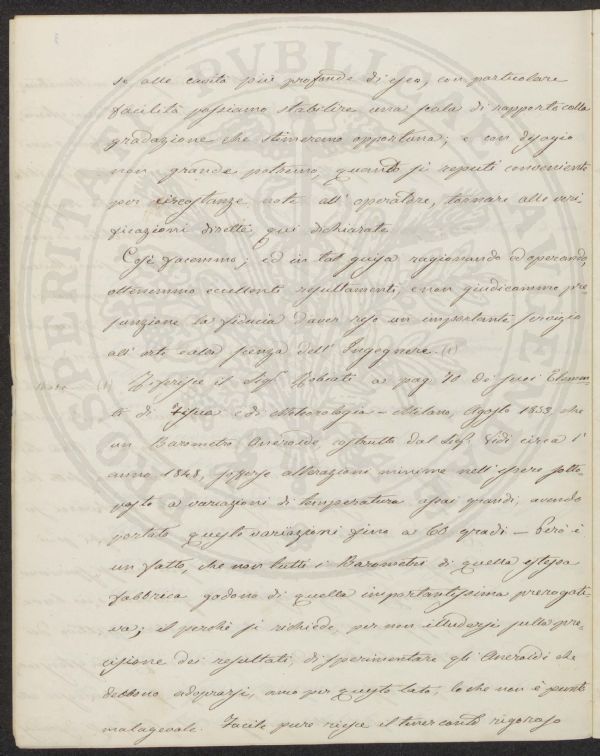 se alle cavità più profonde di esso, con particolare
facilità possiamo stabilire una scala di rapporti colla
gradazione che stimeremo opportuna; e con disagio
non grande potremo, quando si reputi conveniente
per circostanze note all' operatore, tornare alle veri
ficazioni dirette, qui dichiarate
Così facemmo; ed in tal guisa ragionando ed operando,
ottenemmo eccellenti resultamenti, e non giudicammo pre=
sunzione la fiducia d'aver reso un importante servizio
all' arte ed alla scienza dell' Ingegnere. (1)
Note (1) Riferisce il Sigr. a pag. 70 de' suoi Elemen=
ti di Fisica e di Meteorologia - Milano, Agosto 1853 che
un Barometro Aneroide costrutto dal Sigr. Vidi circa l'
anno 1848, sofferse alterazioni minime nell' essere sotto=
posto a variazioni di temperatura assai grandi, avendo
portato queste variazioni fino a 60 gradi - Però è
un fatto, che non tutti i Barometri di quella istessa
fabbrica godono di quella importantissima prerogati=
va; il perchè si richiede, per non illudersi sulla pre=
cisione dei resultati, di sperimentare gli Aneroidi che
debbono adoprarsi, anco per questo lato, lo che non è punto
malagevole. Facile pure riesce il tener conto rigoroso